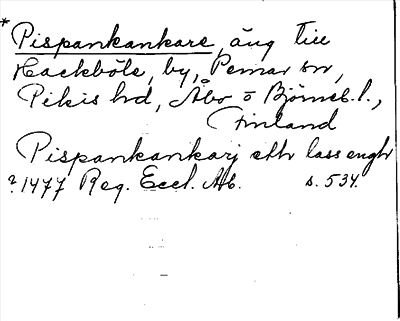 *Pispankankare, äng till
Hackböle, by, Pemar sn,
Pikis hd, Åbo o Björneb. l.,
Finland
Pispankankarj eth lass engh
?1477 Reg. Eccl. Ab. s. 534.